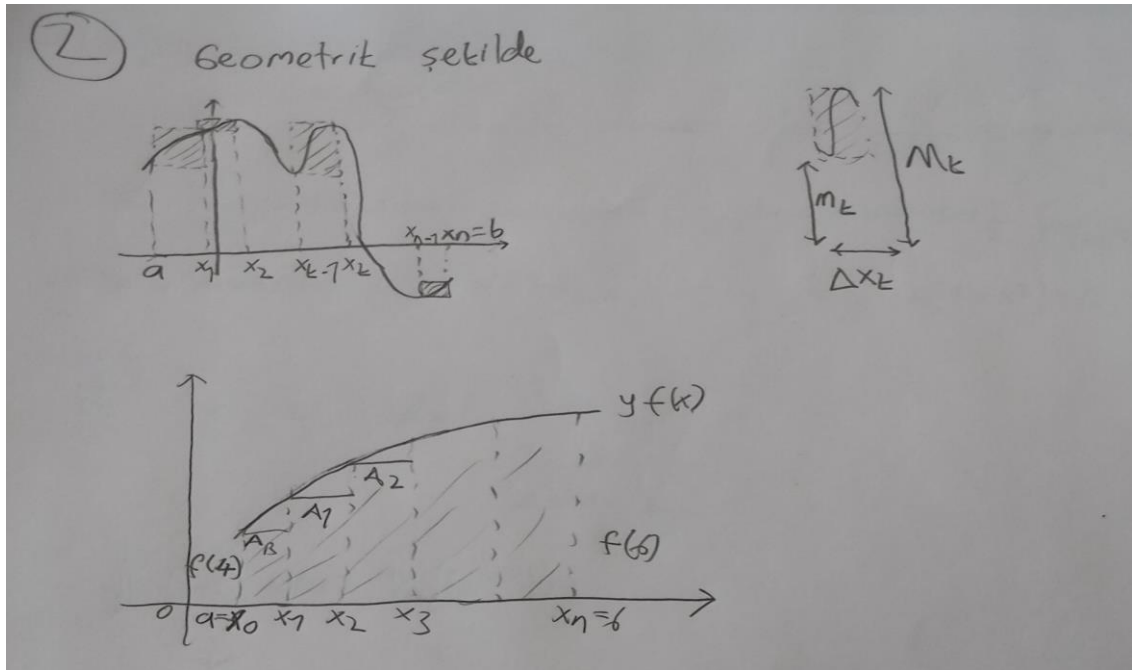 2 Geometrik şekilde
a x1 x2 xk-1 xk xn-1 xn=b
mk Mk
Δxk
y f(x)
A2
A1
f(a)
f(b)
0 a=x0 x1 x2 x3 xn=b